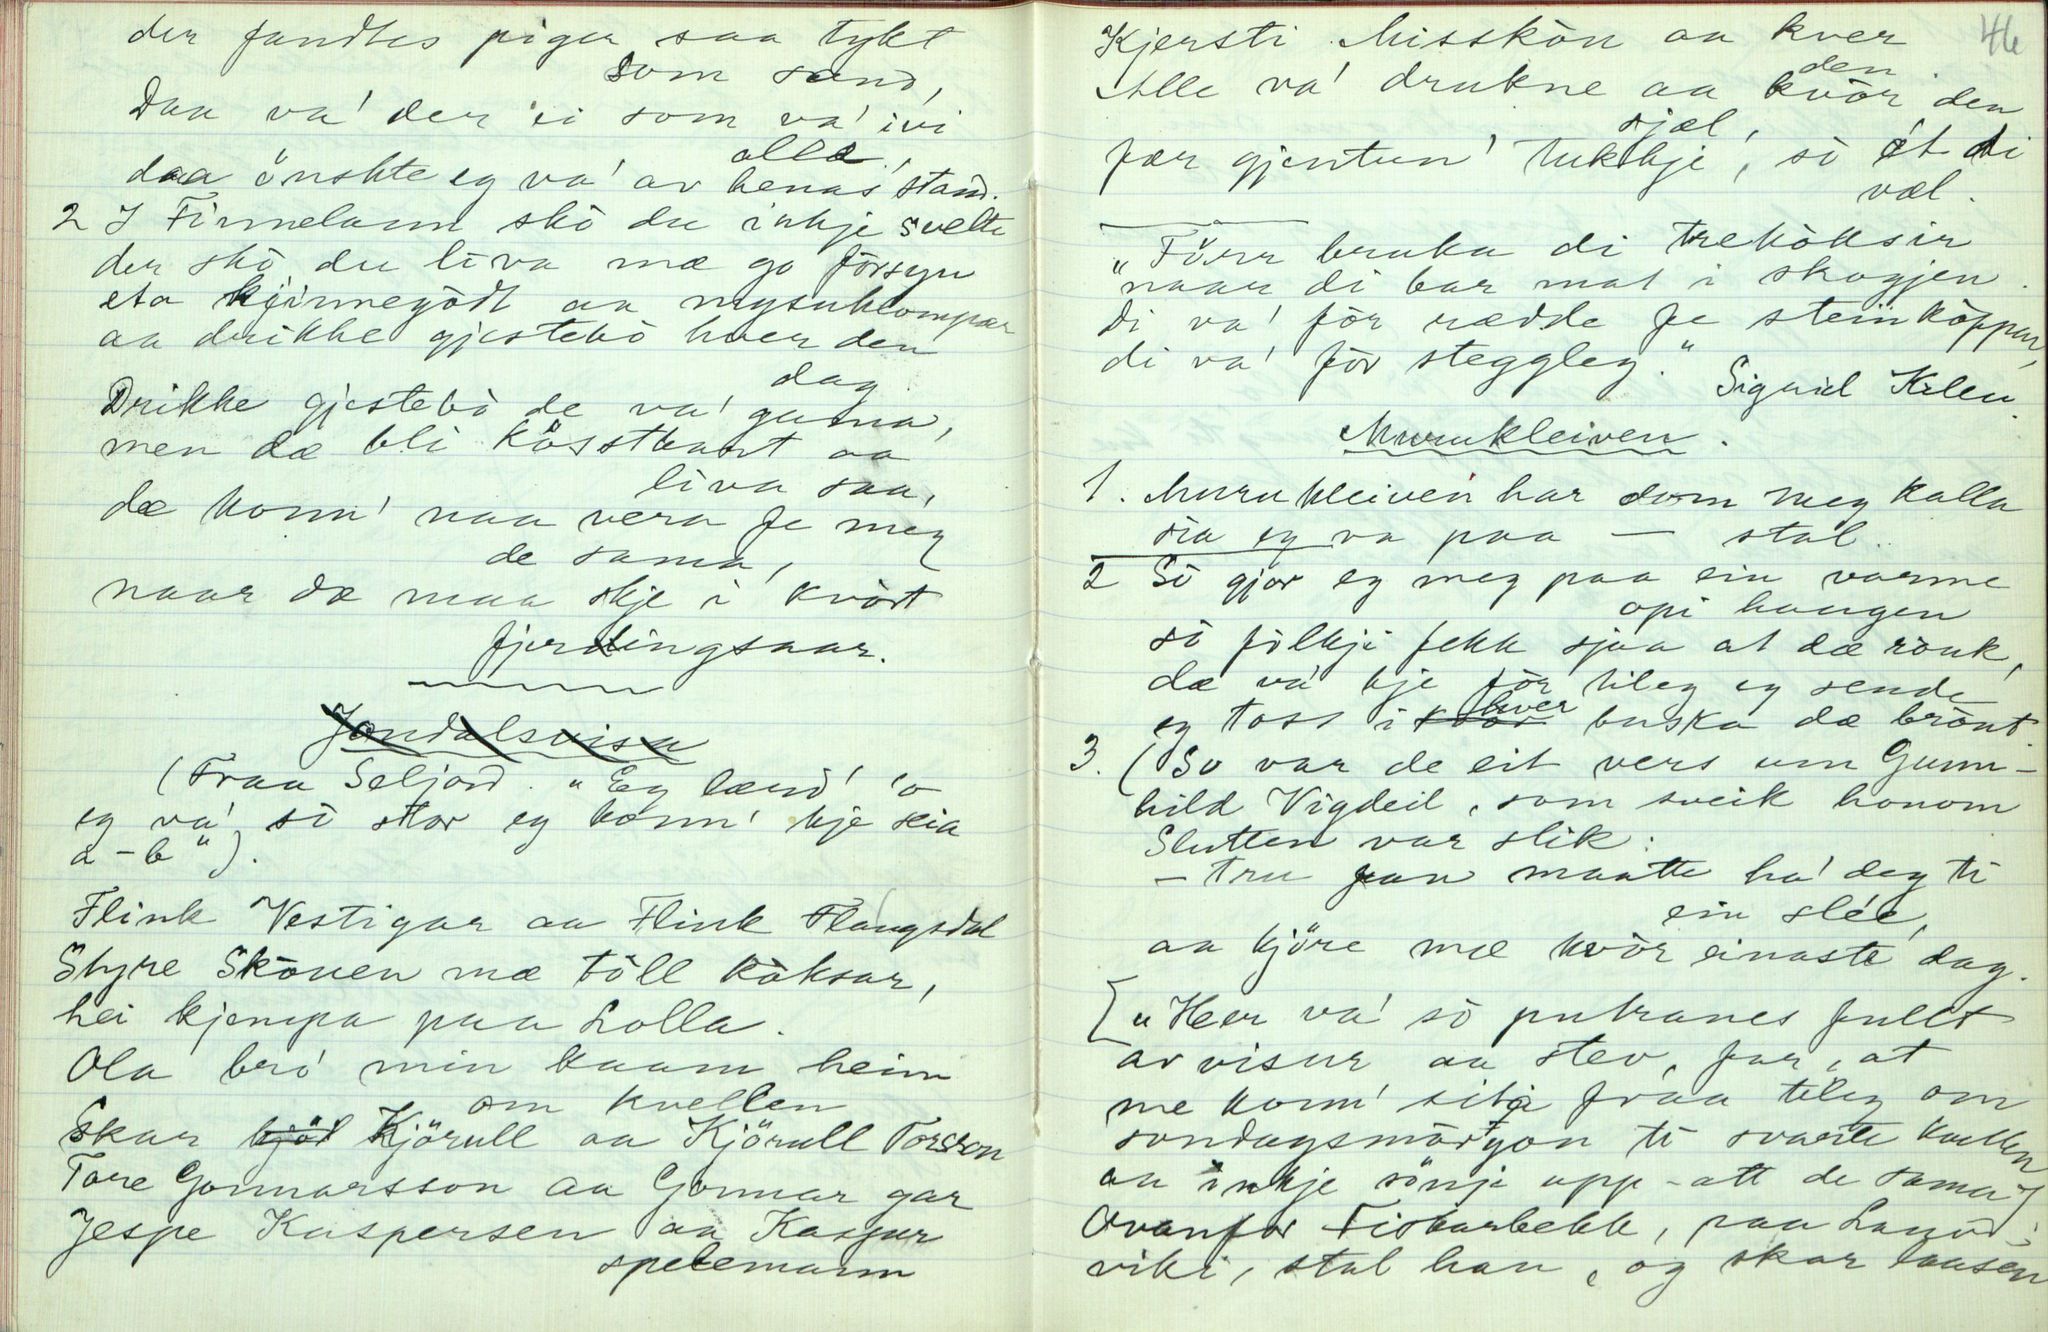 der fandtes piger saa tykt
som sand,
Daa va' der ei som va' ivi
alle,
daa önskte eg va' av henas stand.
2 I Finnelann skò du inkje svelte
der skò du liva mæ go försyn
eta kjinnegòdt aa mysuklompar
aa drikke gjestebò hver den
dag.
Drikke gjestebò de va' gama,
men dæ bli kösstbart aa
liva saa,
dæ konn' naa vera fe meg
de sama,
naar dæ maa skje i kvòrt
fjerdingsaar.
Jondalsvisa
(Fraa Seljord. "Eg lærd' 'o
eg va' sò stor eg konn' kje seia
a-b").
Flink Vestigar aa Flink Flaugsdal
Styre Skòuen mæ tòll kòksar,
hei kjempa paa Lolla.
Ola bró min kaam heim
om kvellen
Skar kjöl Kjörull aa Kjörull Torsson
Tore Gonnarsson aa Gonnar gar
Jespe Kaspersen aa Kaspar
spelemann
46
Kjersti Misskòn aa kver
den
Alle va' drukne aa kvòr den
sjæl,
fær gjentun' tukkje', sò åt di
væl.
"Förr bruka di treköksir
naar di bar mat i skogjen.
Di va' fòr rædde fe steinkòppar,
di va' fòr steggleg."
Sigrid Kleu.
Murukleiven.
1. Murukleiven har dom meg kalla
sia eg va paa — stal.
2 Sò gjor eg meg paa ein varme
opi haugen
sò fòlkji fekk sjaa at dæ röuk,
dæ va' kje fòr tileg eg sende
hver
eg toss i kvòr buska dæ brònt.
3. (So var de eit vers um Gunn-
hild Vigdeil, som sveik honom
Slutten var slik:
– tru fan maatte ha' deg ti
ein slée,
aa kjöre mæ kvòr einaste dag.
["Her va' sò putranes fullt
av visur aa stev, far, at
me konn' sitja fraa tileg om
sondagsmòrgon ti svarte kvellen
aa inkje sönji upp-att de sama]
Ovanfor Fiskarbekk, paa Langöd-
viki, stal han, og skar lausen